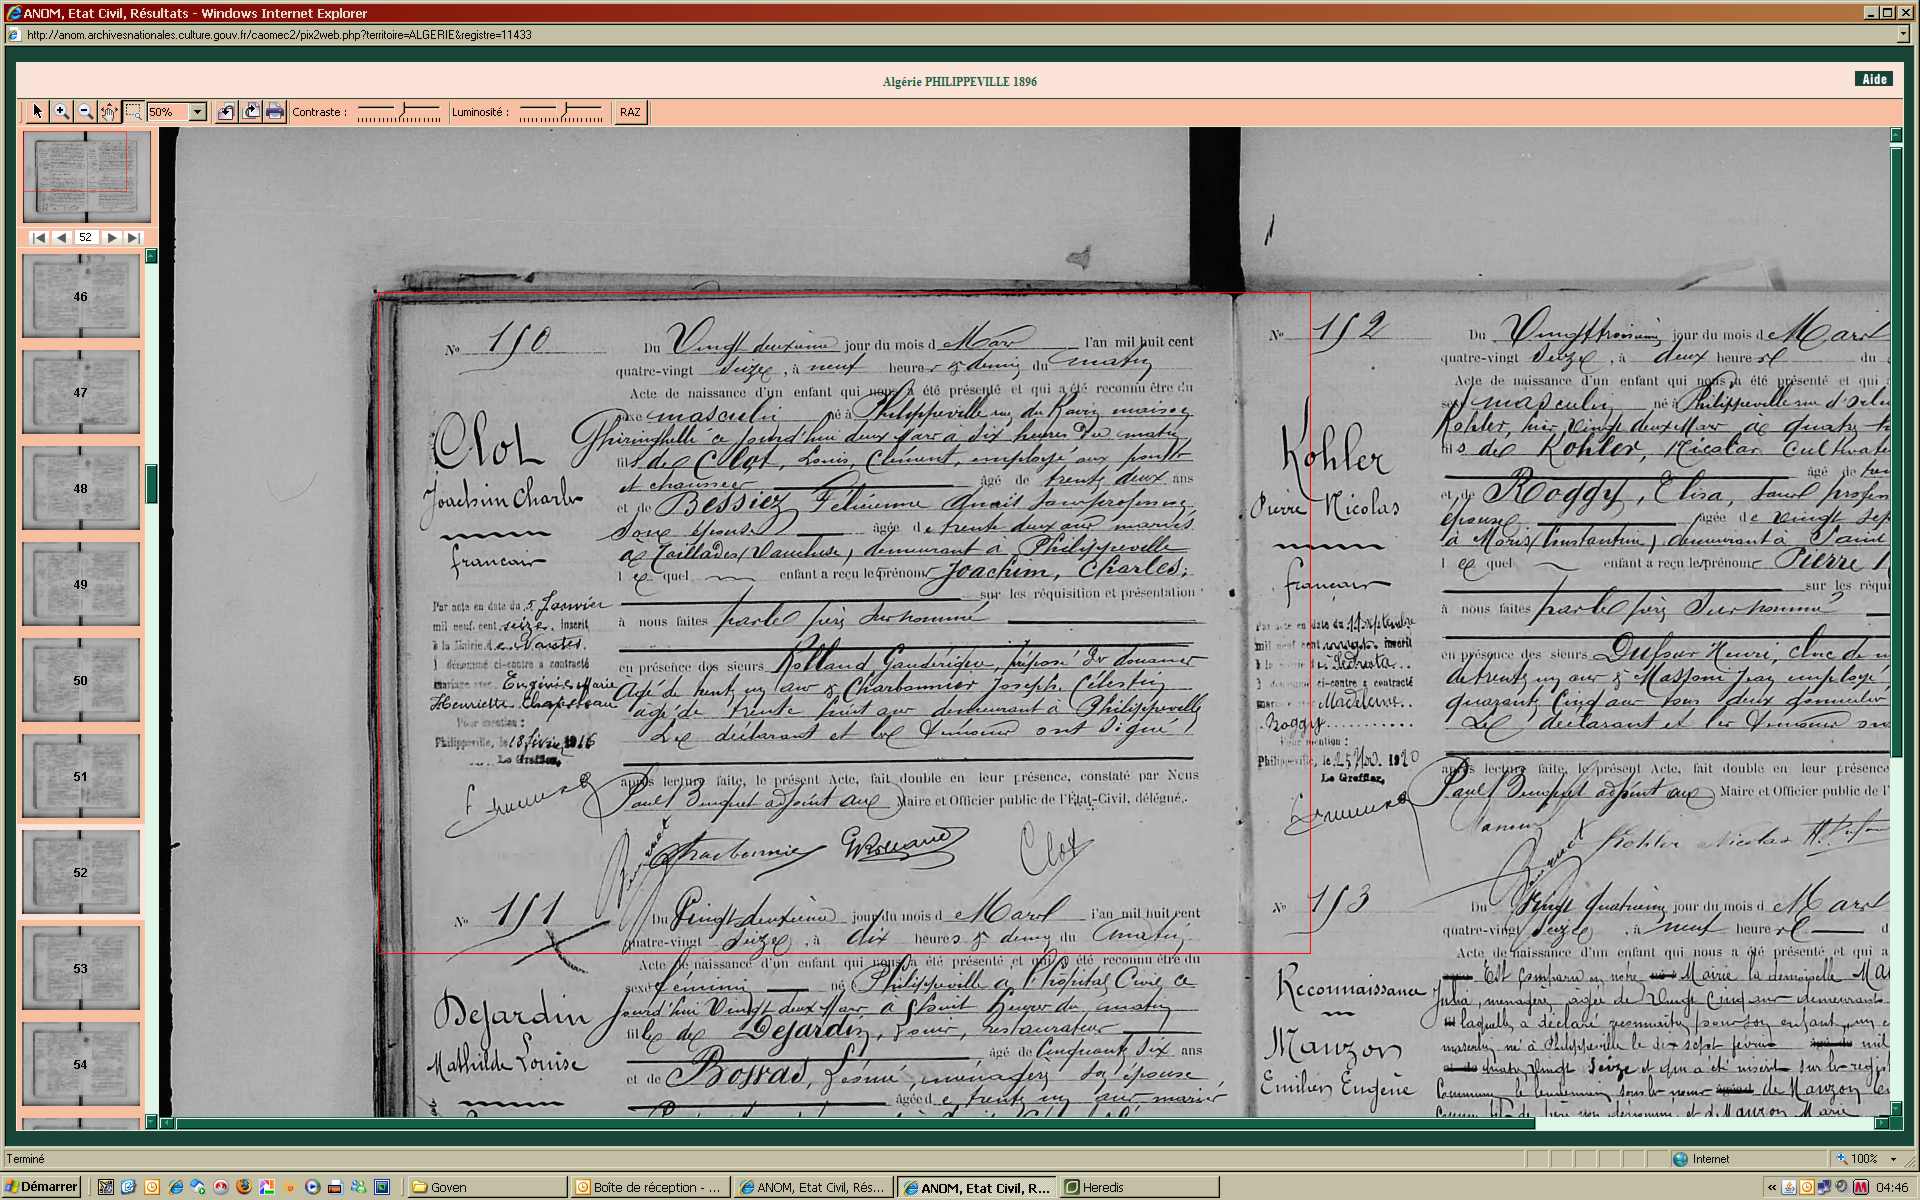 ANOM, Etat Civil, Résultats - Windows Internet Explorer
http://anom.archivesnationales.culture.gouv.fr/caomec2/pix2web.php?territoire=ALGERIE&registre=11433
Algérie PHILIPPEVILLE 1896
Aide
50%
Contraste :
Luminosité :
RAZ
52
46
47
48
49
50
51
52
53
54
No 150
Du Vingt deuxième jour du mois de Mars l'an mil huit cent
quatre-vingt Seize, à neuf heures & demie du matin
Acte de naissance d'un enfant qui nous a été présenté et qui a été reconnu être du
sexe masculin né à Philippeville rue du Ravin maison
Ghiringhelli ce jourd'hui deux Mars à dix heures du matin,
fils de Clot, Louis, Clément, employé aux ponts
et chaussées âgé de trente deux ans
et de Bessiez Félicienne Anaïs sans profession,
son épouse âgée de trente deux ans mariés
à Taillades (Vaucluse) demeurant à Philippeville
lequel enfant a reçu les prénoms Joachim, Charles,
sur les réquisition et présentation
à nous faites par le père susnommé
en présence des sieurs Rolland Gaudérique, préposé des douanes
âgé de trente un ans & Charbonnier Joseph Célestin
âgé de trente huit ans demeurant à Philippeville
Le déclarant et les témoins ont signé
après lecture faite, le présent Acte, fait double en leur présence, constaté par Nous
Paul adjoint au Maire et Officier public de l'État-Civil, délégué.
Clot
Joachim Charles
français
Par acte en date du 5 Janvier
mil neuf cent seize inscrit
à la Mairie de Nantes
l dénommé ci-contre a contracté
mariage avec Eugénie Marie
Henriette
Pour mention :
Philippeville, le 18 février 1916
Le Greffier,
Charbonnier
GRolland
Clot
No 151
Du Vingt deuxième jour du mois de Mars l'an mil huit cent
quatre-vingt Seize, à dix heures & demie du matin
Acte de naissance d'un enfant qui nous a été présenté et qui a été reconnu être du
sexe féminin né Philippeville à l'hôpital Civil ce
jourd'hui Vingt deux Mars à huit heures du matin
fille de Dejardin, Louis, restaurateur
âgé de Cinquante Six ans
et de Bossas, ménagère son épouse
âgée de trente un ans mariés
Dejardin
Mathilde Louise
No 152
Du Vingt troisième jour du mois de Mars
quatre-vingt Seize, à deux heures du
Acte de naissance d'un enfant qui nous a été présenté et qui a
sexe masculin né à Philippeville rue d'
Kohler, hier Vingt deux Mars à quatre
fils de Kohler, Nicolas Cultivateur
âgé de
et de Roggy, Elisa, sans profession
épouse âgée de vingt sept
à (Constantine) demeurant à Saint
lequel enfant a reçu les prénoms Pierre N
sur les réquisi
à nous faites par le père Susnommé
en présence des sieurs Dufour Henri, clerc de n
de trente un ans & Massoni Jean employé
quarante Cinq ans tous deux domiciliés
Le déclarant et les témoins
après lecture faite, le présent Acte, fait double en leur présence
Paul adjoint au Maire et Officier public de l'
Kohler
Pierre Nicolas
français
Par acte en date du 11 septembre
mil neuf cent vingt inscrit
ci-contre a contracté
Madeleine
Roggy
Pour mention :
Philippeville, le 25 Nov. 1920
Le Greffier,
Kohler Nicolas
No 153
Du Vingt Quatrième jour du mois de Mars
quatre-vingt Seize, à neuf heures
Acte de naissance d'un enfant qui nous a été présenté et qui a
Est comparu en notre Mairie la demoiselle
Julia, ménagère, âgée de Vingt Cinq ans demeurant
laquelle a déclaré reconnaître pour son enfant, un
masculin né à Philippeville le dix sept février mil
quatre vingt Seize et qui a été inscrit sur le regist
Commune le lendemain sous le nom de Mauzon
Reconnaissance
Mauzon
Emilien Eugène
Terminé
Internet
100%
Démarrer
Goven
Boîte de réception - ...
ANOM, Etat Civil, Rés...
ANOM, Etat Civil, R...
Heredis
04:46